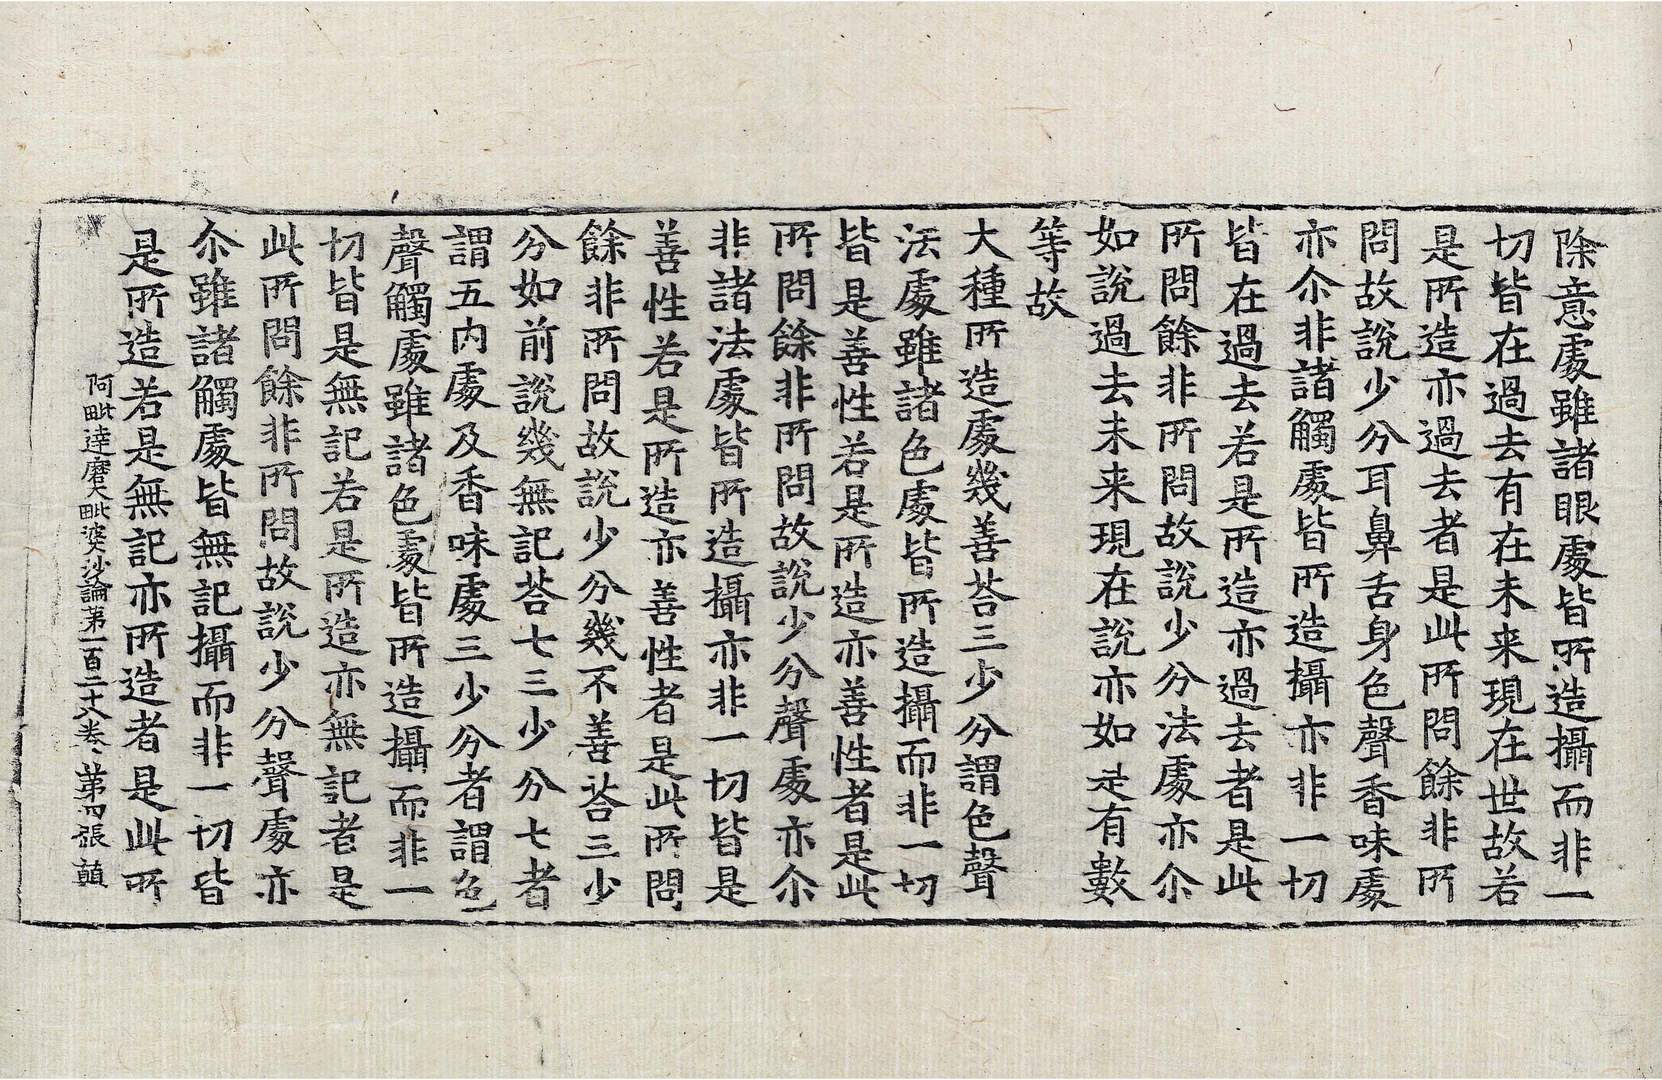 除意處雖諸眼處皆所造攝而非一
切皆在過去有在未来現在世故若
是所造亦過去者是此所問餘非所
問故說少分耳鼻舌身色聲香味處
亦尒非諸觸處皆所造攝亦非一切
皆在過去若是所造亦過去者是此
所問餘非所問故說少分法處亦尒
如說過去未来現在說亦如是有數
等故
大種所造處幾善荅三少分謂色聲
法處雖諸色處皆所造攝而非一切
皆是善性若是所造亦善性者是此
所問餘非所問故說少分聲處亦尒
非諸法處皆所造攝亦非一切皆是
善性若是所造亦善性者是此所問
餘非所問故說少分幾不善荅三少
分如前說幾無記荅七三少分七者
謂五内處及香味處三少分者謂色
聲觸處雖諸色處皆所造攝而非一
切皆是無記若是所造亦無記者是
此所問餘非所問故說少分聲處亦
尒雖諸觸處皆無記攝而非一切皆
是所造若是無記亦所造者是此所
阿毗達磨大毗婆沙論第一百二十八卷 第四張 顛